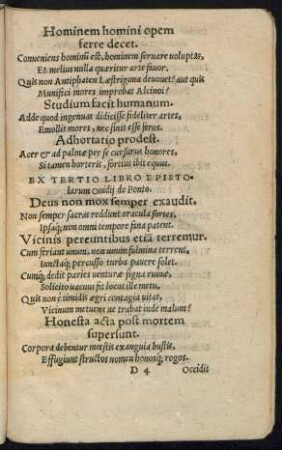 Hominem homini opem
ferre decet.
Conueniens hominũ est, hominem seruare voluptas,
Et melius nulla quæritur arte fauor.
Quis non Antiphaten Læstrigona deuouet? aut quis
Munifici mores improbat Alcinoi?
Studium facit humanum.
Adde quod ingenuas didicisse fideliter artes,
Emollit mores, nec sinit esse feros.
Adhortatio prodest.
Acer & ad palmæ per se cursurus honores,
Si tamen horteris, fortius ibit equus.
EX TERTIO LIBRO EPISTO-
larum Ouidij de Ponto.
Deus non mox semper exaudit.
Non semper sacras reddunt oracula sortes,
Ipsaq; non omni tempore fana patent.
Vicinis pereuntibus etiã terremur.
Cum feriant unum, non unum fulmina terrent,
Iunctaq; percusso turba pauere solet.
Cumq; dedit paries venturæ signa ruinæ,
Solicito vacuus fit locus ille metu.
Quis non è timidis ægri contagia vitat,
Vicinum metuens ne trabat inde malum?
Honesta acta post mortem
supersunt.
Corpora debentur mœstis exanguia bustis,
Effugiunt structos nomen honosq; rogos.
D 4 Occidit